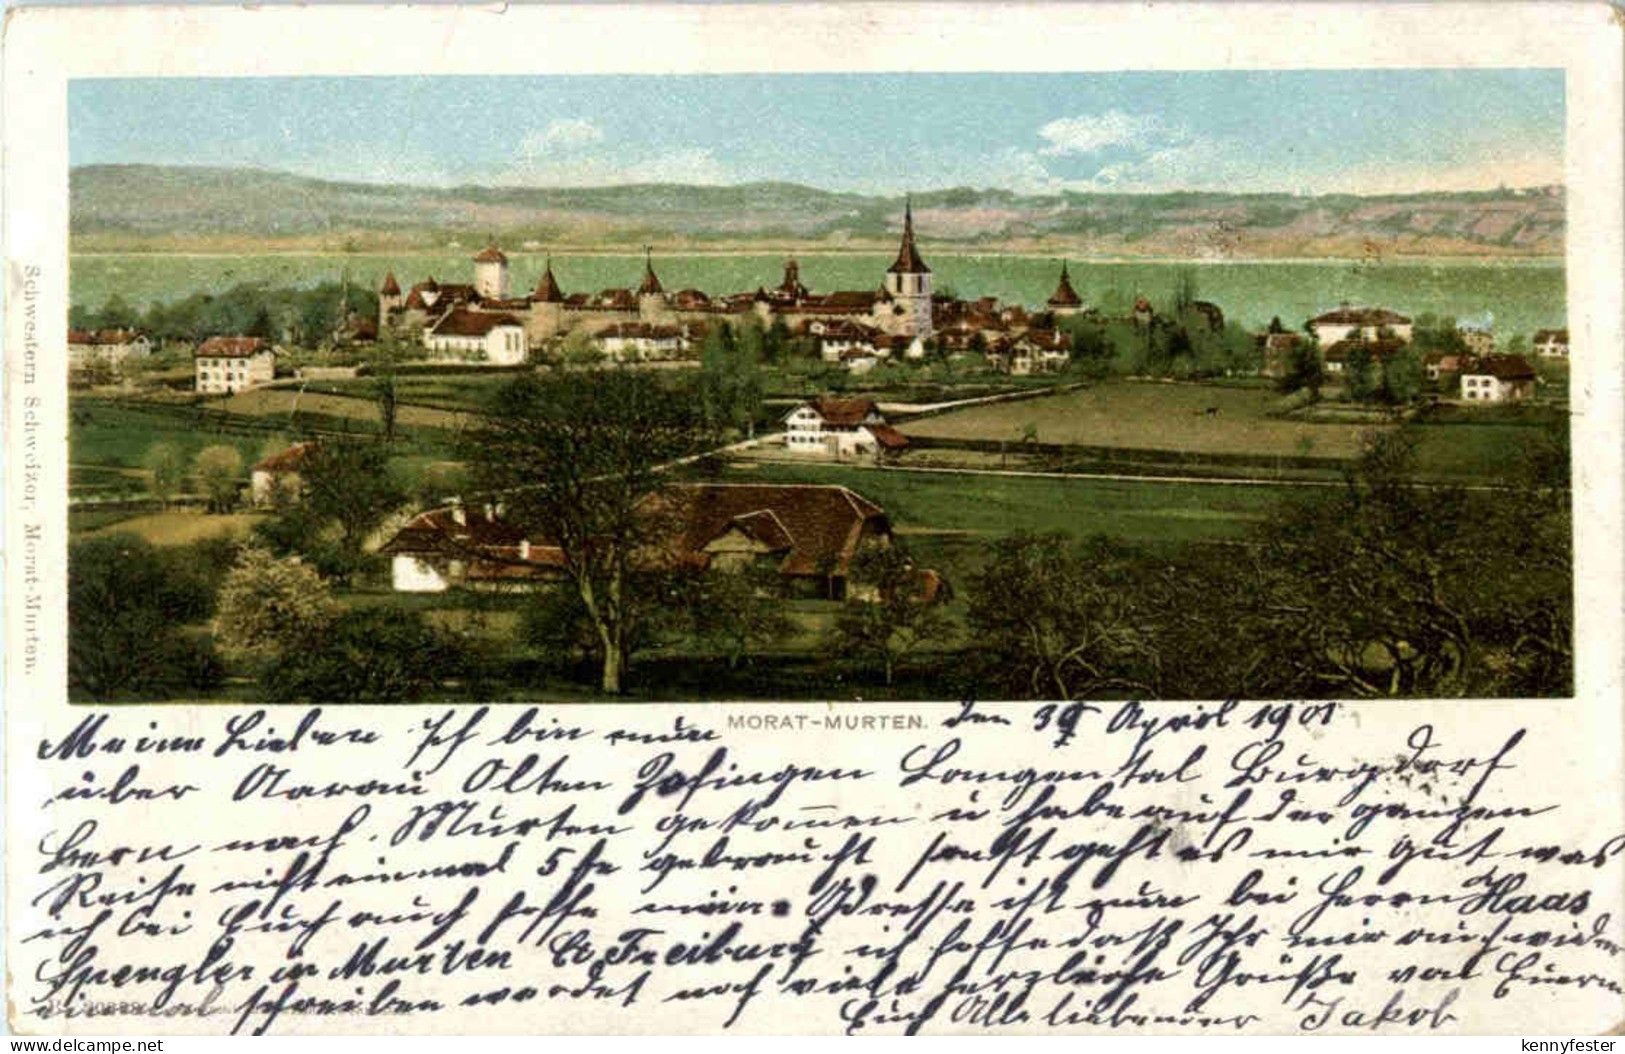 Schwestern Schweizer, Morat-Murten.
MORAT-MURTEN.
den April 1901
Meine Lieben Ich bin nun
über Aarau Olten Zofingen Langental Burgdorf
Bern nach Murten gekommen u habe auf der ganzen
Reise nicht einmal 5 gebraucht sonst geht es mir gut was
ich bei Euch auch hoffe meine Adresse ist nun bei Herrn Haas
Spengler in Murten Ct Freiburg ich hoffe daß Ihr mir auch wider
einmal schreiben werdet noch viele herzliche Grüße von Euerm
Euch Alle liebender Jakob
delcampe.net
kennyfester